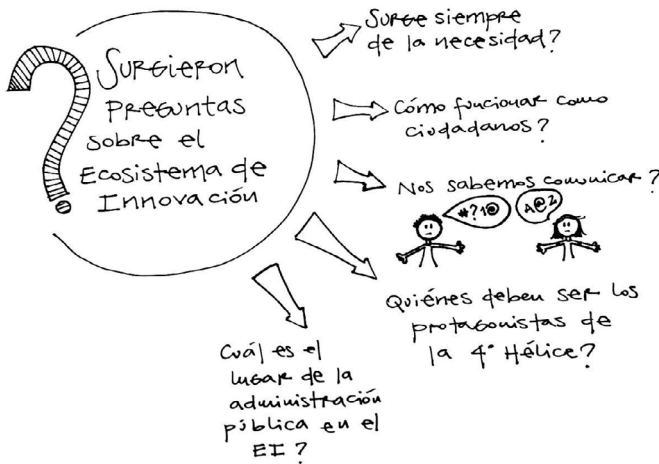 Surgieron
preguntas
sobre el
Ecosistema de
Innovación
Surge siempre
de la necesidad?
Cómo funcionar como
ciudadanos?
Nos sabemos comunicar?
#?!@
A@Z
Quiénes deben ser los
protagonistas de
la 4° Hélice?
Cuál es el
lugar de la
administración
pública en el
EI?